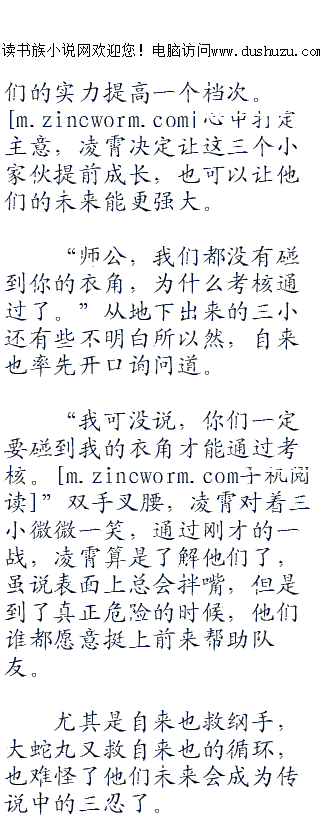 读书族小说网欢迎您！电脑访问www.dushuzu.com
们的实力提高一个档次。
[m.zincworm.com]心中打定
主意，凌霄决定让这三个小
家伙提前成长，也可以让他
们的未来能更强大。
“师公，我们都没有碰
到你的衣角，为什么考核通
过了。”从地下出来的三小
还有些不明白所以然，自来
也率先开口询问道。
“我可没说，你们一定
要碰到我的衣角才能通过考
核。[m.zincworm.com手机阅
读]”双手叉腰，凌霄对着三
小微微一笑，通过刚才的一
战，凌霄算是了解他们了，
虽说表面上总会拌嘴，但是
到了真正危险的时候，他们
谁都愿意挺上前来帮助队
友。
尤其是自来也救纲手，
大蛇丸又救自来也的循环，
也难怪了他们未来会成为传
说中的三忍了。